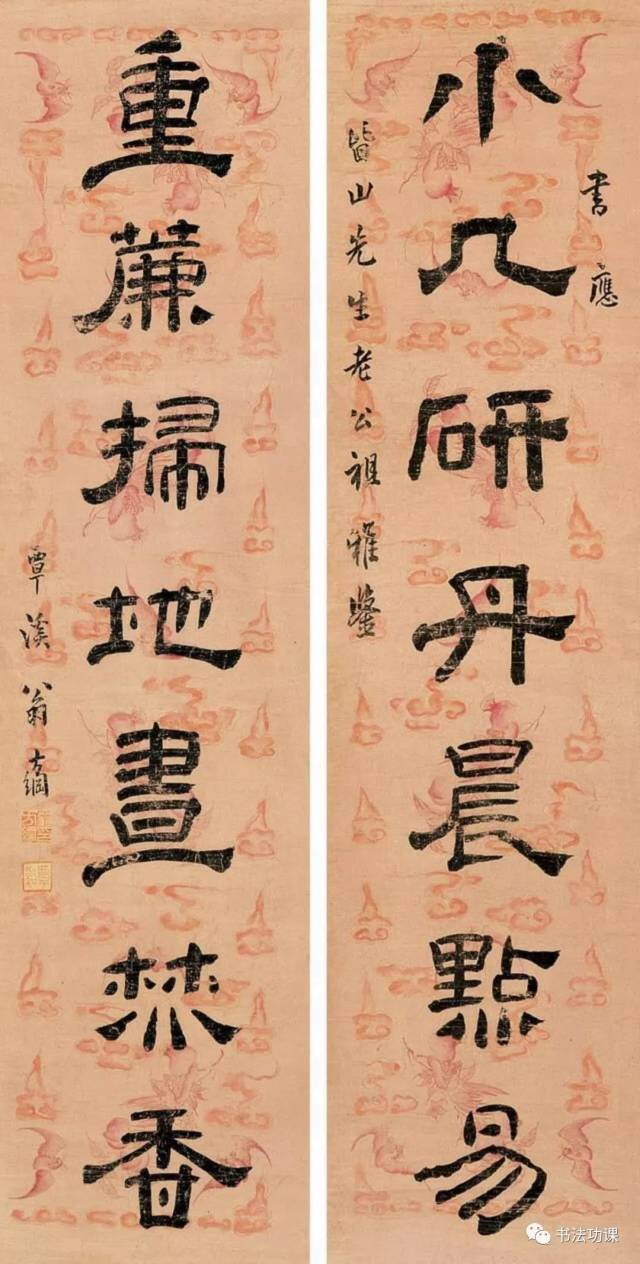 書應
小几研丹晨點易
皆山先生老公祖雅鑒
重簾掃地晝焚香
覃溪翁方綱
书法功课